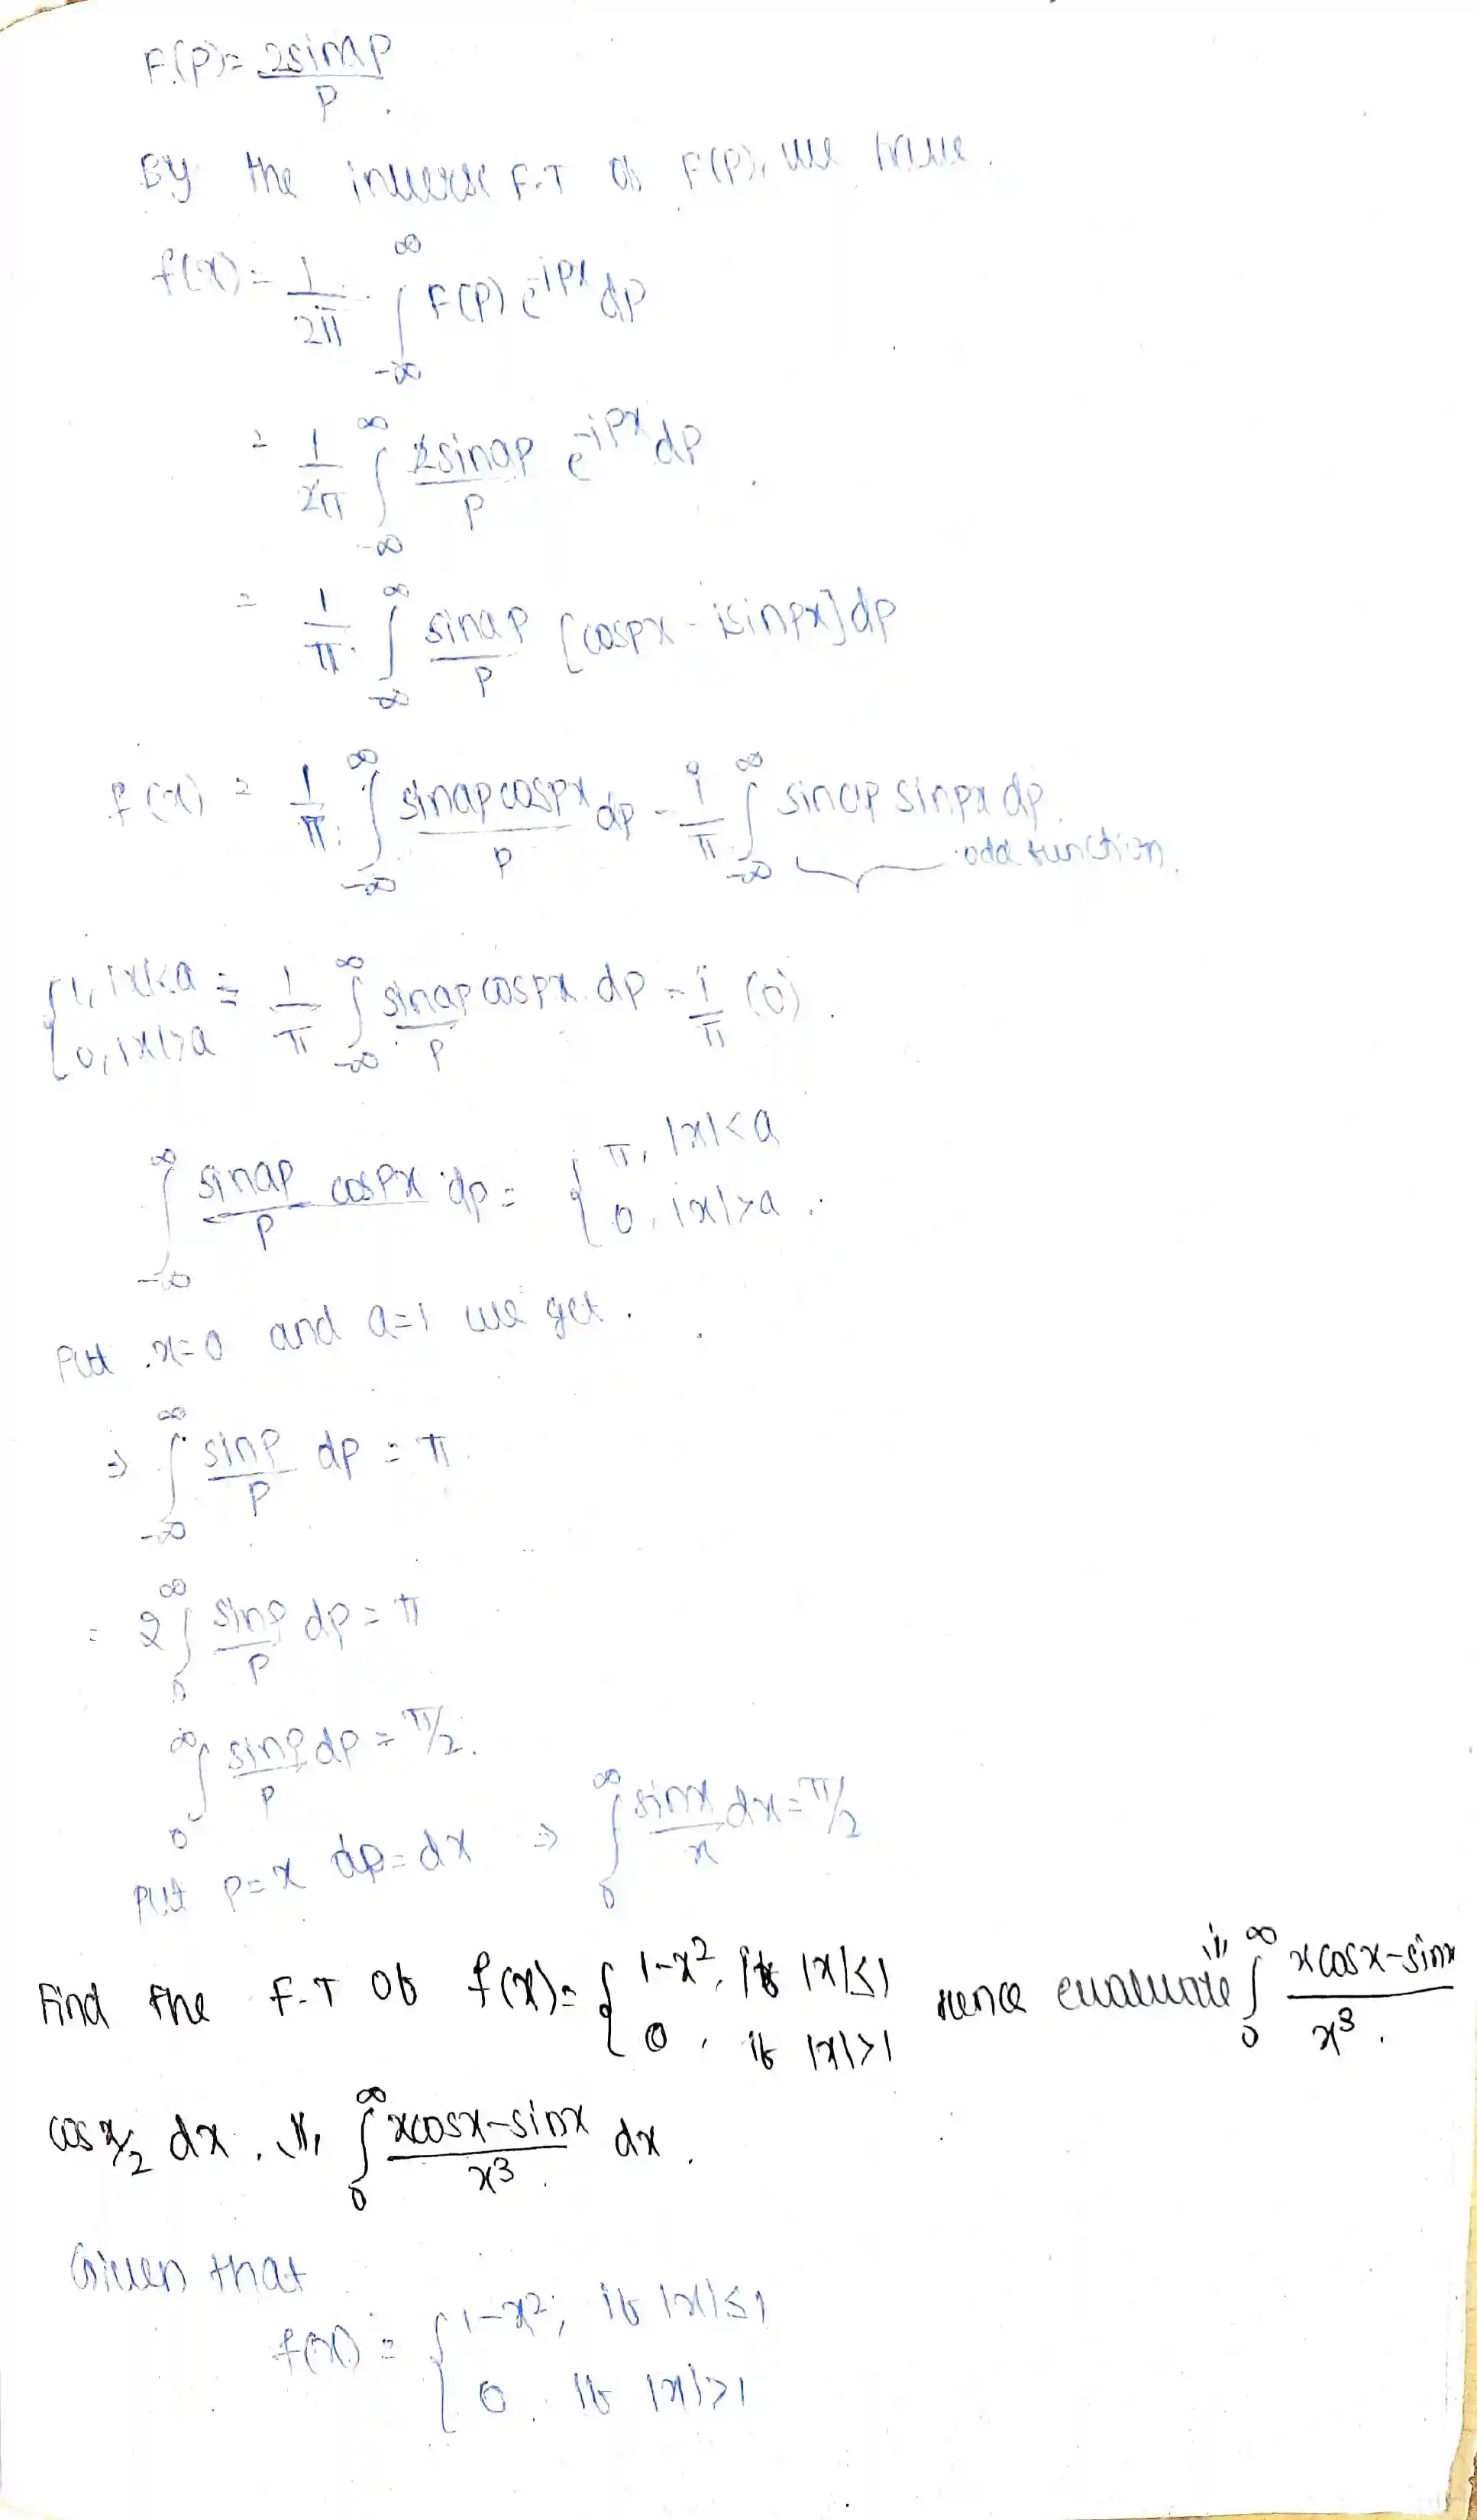 F(P) = 2sinap / P
By the inverse F.T of F(P), we have.
f(x) = 1/2π ∫_{-∞}^{∞} F(P) e^{-ipx} dp
= 1/2π ∫_{-∞}^{∞} 2sinap/P e^{-ipx} dp
= 1/π ∫_{-∞}^{∞} sinap/P [cospx - isinpx] dp
f(x) = 1/π ∫_{-∞}^{∞} sinap cospx / P dp - i/π ∫_{-∞}^{∞} sinap sinpx dp.
odd function.
{1, |x|<a = 1/π ∫_{-∞}^{∞} sinap/P cospx dp - i/π (0).
0, |x|>a
∫_{-∞}^{∞} sinap/P cospx dp = { π, |x|<a
0, |x|>a .
Put x=0 and a=1 we get.
⇒ ∫_{-∞}^{∞} sinp/P dp = π
= 2∫_{0}^{∞} sinp/P dp = π
∫_{0}^{∞} sinp/P dp = π/2.
put P=x dp=dx ⇒ ∫_{0}^{∞} sinx/x dx = π/2
Find the F.T of f(x) = { 1-x², if |x|≤1 Hence evaluate i, ∫_{0}^{∞} xcosx-sinx / x³ .
0, if |x|>1
cos x/2 dx. ii, ∫_{0}^{∞} xcosx-sinx / x³ dx.
Given that
f(x) = { 1-x²; if |x|≤1
0, if |x|>1